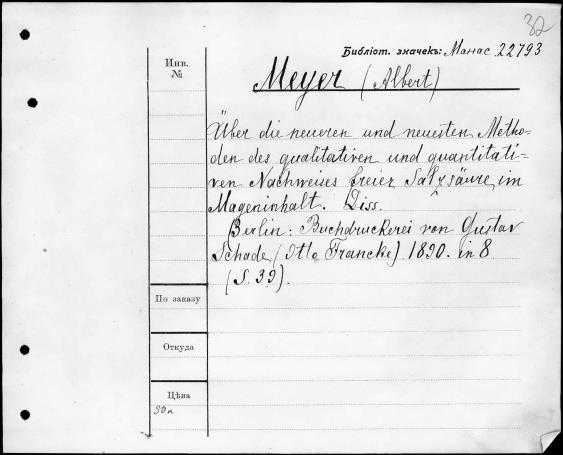 32
Библіот. значекъ: Манас 22793
Инв.
№
Meyer (Albert)
Über die neueren und neuesten Metho-
den des qualitativen und quantitati-
ven Nachweises freier Salzsäure im
Mageninhalt. Diss.
Berlin: Buchdruckerei von Gustav
Schade (Otto Francke) 1890. in 8
(S. 39).
По заказу
Откуда
Цѣна